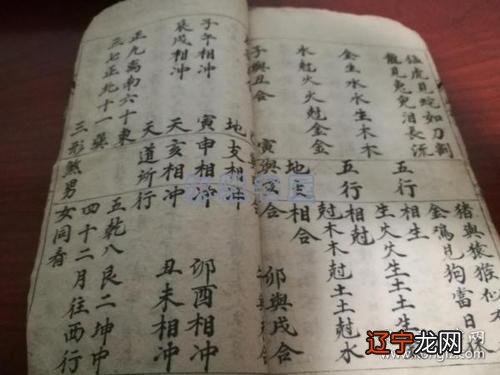 猛虎見蛇如刀割 猪與猿猴似
龍見兔兔泪長流 金鳮見狗當日
五行相生
金生水水生木木 生火火生土土生
五行相尅
水尅火火尅金金 尅木木尅土土尅水
地支相合
子與丑合 寅與亥合 卯與戌合
地支相冲
子午相冲 寅申相冲 卯酉相冲
辰戌相冲 天亥相冲 丑未相冲
天道所行
正九离南六十東 五乾八艮二坤中
三七正北十一巽 四十二月往西行
三形煞男女同看
辽宁龙网